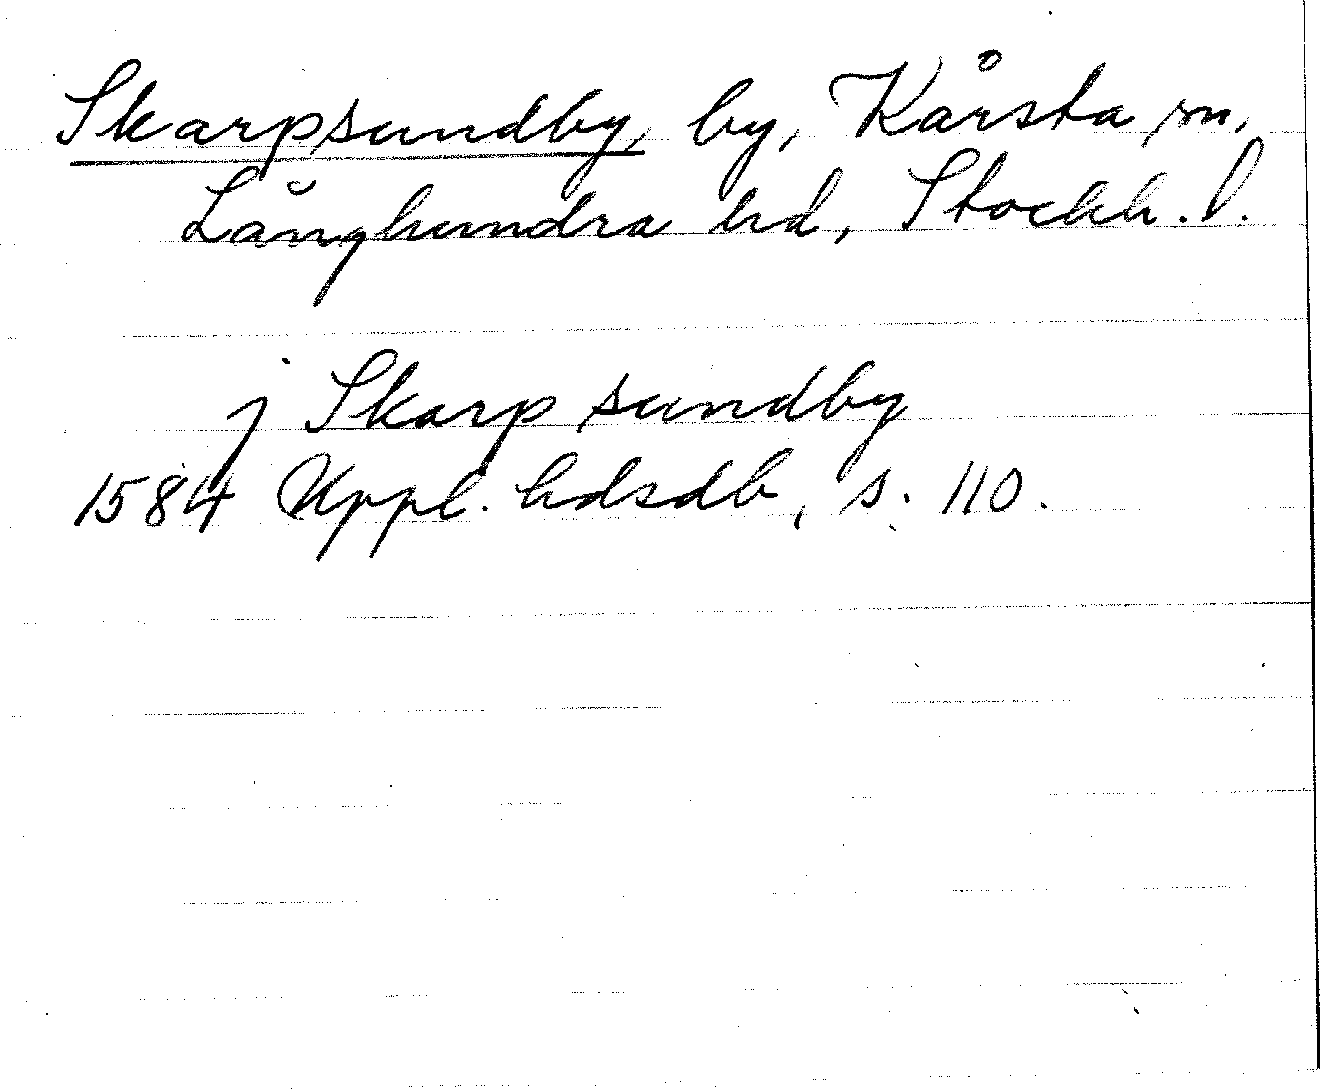 Skarpsundby, by, Kårsta sn,
Långhundra hd, Stockh. l.
j Skarp sundby
1584 Uppl. hdsdb, s. 110.